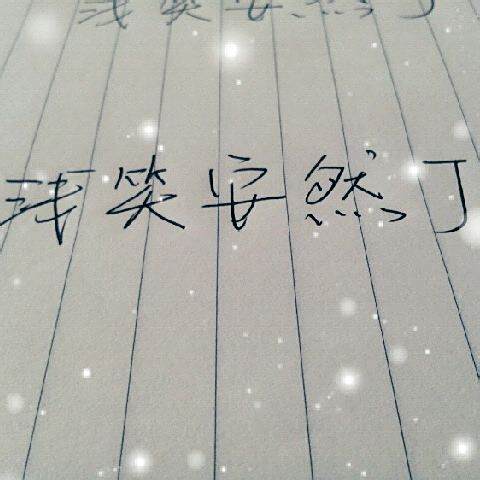 浅笑安然丁
浅笑安然丁